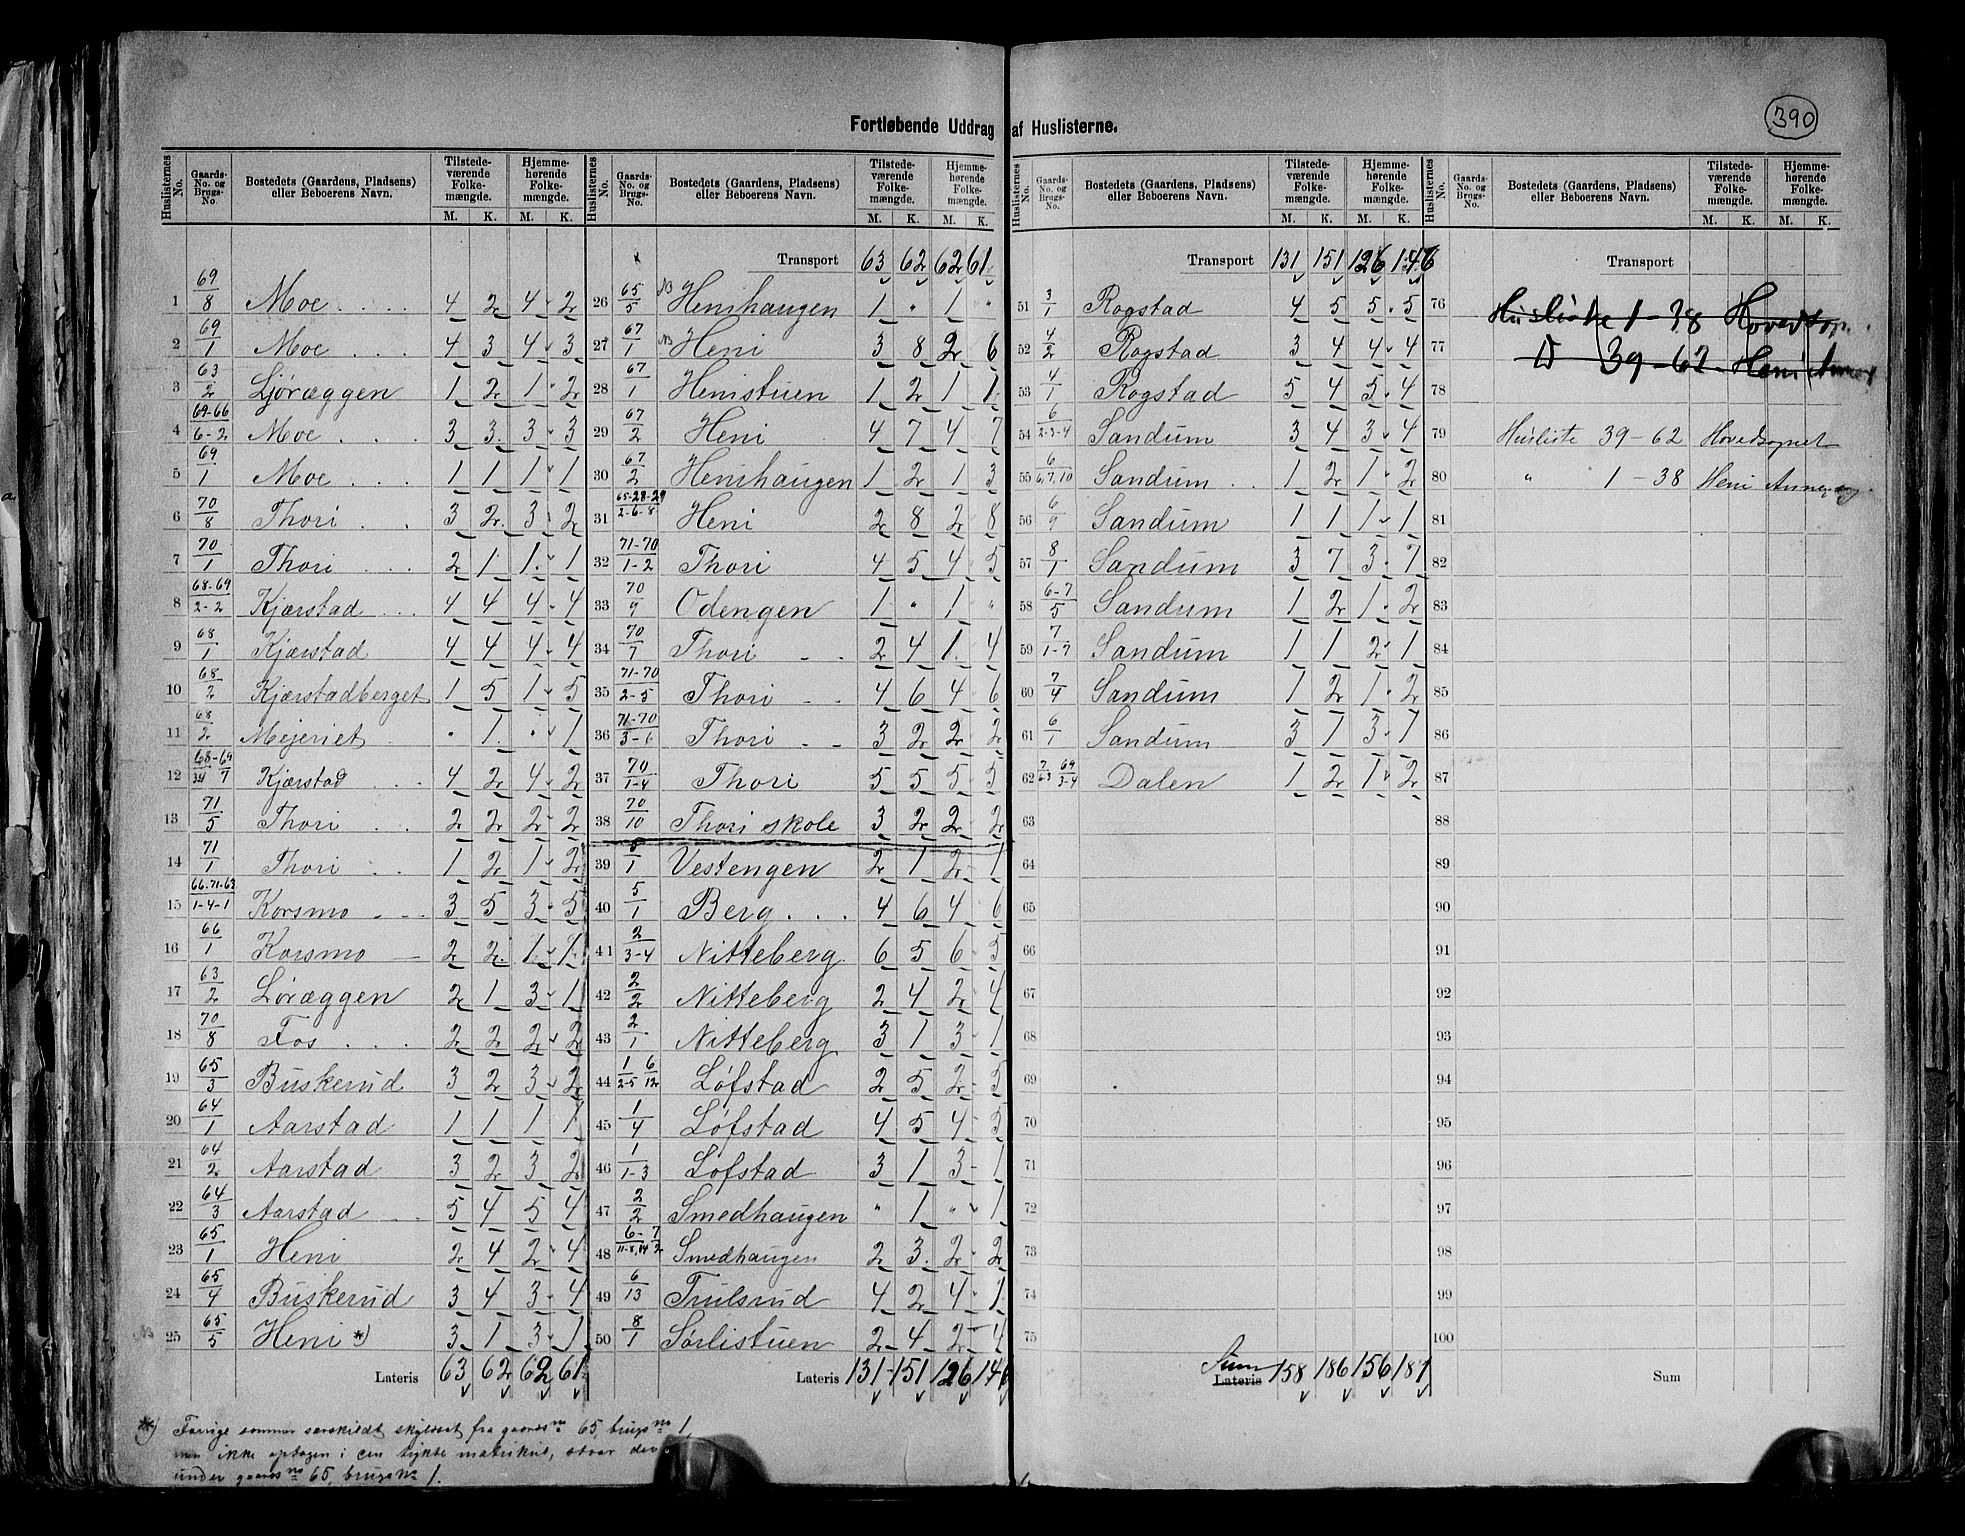 390
Fortløbende Uddrag af Huslisterne.
Huslisternes No. | Gaards-No. og Brugs-No. | Bostedets (Gaardens, Pladsens) eller Beboerens Navn. | Tilstedeværende Folkemængde. M. K. | Hjemmehørende Folkemængde. M. K.
1 | 69/8 | Moe . . . . | 4 | 2 | 4 | 2
2 | 69/1 | Moe . . . | 4 | 3 | 4 | 3
3 | 63/2 | Ljøræggen | 1 | 2 | 1 | 2
4 | 69-66/6-2 | Moe . . . | 3 | 3 | 3 | 3
5 | 69/1 | Moe . . . | 1 | 1 | 1 | 1
6 | 70/8 | Thori . . | 3 | 2 | 3 | 2
7 | 70/1 | Thori . . . | 2 | 1 | 1 | 1
8 | 68-69/2-2 | Kjærstad . . . | 4 | 4 | 4 | 4
9 | 68/1 | Kjærstad | 4 | 4 | 4 | 4
10 | 68/2 | Kjærstadberget | 1 | 5 | 1 | 5
11 | 68/2 | Mejeriet . | " | 1 | " | 1
12 | 68-69/34 7 | Kjærstad . . . | 4 | 2 | 4 | 2
13 | 71/5 | Thori . . | 2 | 2 | 2 | 2
14 | 71/1 | Thori . . | 1 | 2 | 1 | 2
15 | 66-71-63/1-4-1 | Korsmo - - - | 3 | 5 | 3 | 5
16 | 66/1 | Korsmo — | 2 | 2 | 1 | 1
17 | 63/2 | Løræggen | 2 | 1 | 3 | 1
18 | 70/8 | Fos . . . | 2 | 2 | 2 | 2
19 | 65/3 | Buskerud | 3 | 2 | 3 | 2
20 | 64/1 | Aarstad | 1 | 1 | 1 | 1
21 | 64/2 | Aarstad | 3 | 2 | 3 | 2
22 | 64/3 | Aarstad | 5 | 4 | 5 | 4
23 | 65/1 | Heni | 2 | 4 | 2 | 4
24 | 65/4 | Buskerud | 3 | 4 | 3 | 4
NB 25 | 65/5 | Heni *) | 3 | 1 | 3 | 1
Lateris 63 62 62 61
Huslisternes No. | Gaards-No. og Brugs-No. | Bostedets (Gaardens, Pladsens) eller Beboerens Navn. | Tilstedeværende Folkemængde. M. K. | Hjemmehørende Folkemængde. M. K.
Transport 63 62 62 61
26 | 65/5 | NB Henihaugen | 1 | " | 1 | "
27 | 67/1 | NB Heni | 3 | 8 | 2 | 6
28 | 67/1 | Henistuen | 1 | 2 | 1 | 1
29 | 67/2 | Heni | 4 | 7 | 4 | 7
30 | 67/2 | Henihaugen | 1 | 2 | 1 | 3
31 | 65-28-29/2-6-8 | Heni | 2 | 8 | 2 | 8
32 | 71-70/1-2 | Thori | 4 | 5 | 4 | 5
33 | 70/9 | Odengen | 1 | " | 1 | "
34 | 70/7 | Thori - - | 2 | 4 | 1 | 4
35 | 71-70/2-5 | Thori - - | 4 | 6 | 4 | 6
36 | 71-70/3-6 | Thori - - | 3 | 2 | 2 | 2
37 | 70/1-4 | Thori | 5 | 5 | 5 | 5
38 | 70/10 | Thori skole | 3 | 2 | 2 | 2
39 | /1 | Vestengen | 2 | 1 | 2 | 1
40 | 5/1 | Berg . . . | 4 | 6 | 4 | 6
41 | 2/3-4 | Nitteberg | 6 | 5 | 6 | 5
42 | 2/2 | Nitteberg | 2 | 4 | 2 | 4
43 | 2/1 | Nitteberg | 3 | 1 | 3 | 1
44 | 1/2-5 6/12 | Løfstad | 2 | 5 | 2 | 5
45 | 1/4 | Løfstad | 4 | 5 | 4 | 5
46 | 1/1-3 | Løfstad | 3 | 1 | 3 | 1
47 | 2/2 | Smedhaugen | " | 1 | " | 1
48 | 6-7/11-8,14 2 | Smedhaugen | 2 | 3 | 2 | 2
49 | 6/13 | Trulsrud | 4 | 2 | 4 | 1
50 | 8/1 | Sørlistuen | 2 | 4 | 2 | 4
Lateris 131 151 126 146
Huslisternes No. | Gaards-No. og Brugs-No. | Bostedets (Gaardens, Pladsens) eller Beboerens Navn. | Tilstedeværende Folkemængde. M. K. | Hjemmehørende Folkemængde. M. K.
Transport 131 151 126 146
51 | 3/1 | Rogstad | 4 | 5 | 5 | 5
52 | 4/2 | Rogstad | 3 | 4 | 4 | 4
53 | 4/1 | Rogstad | 5 | 4 | 5 | 4
54 | 6/2-3-4 | Sandum | 3 | 4 | 3 | 4
55 | 6/6,7,10 | Sandum . . | 1 | 2 | 1 | 2
56 | 6/9 | Sandum | 1 | 1 | 1 | 1
57 | 8/1 | Sandum | 3 | 7 | 3 | 7
58 | 6-7/5 | Sandum | 1 | 2 | 1 | 2
59 | 7/1-7 | Sandum | 1 | 1 | 2 | 1
60 | 7/4 | Sandum | 1 | 2 | 1 | 2
61 | 6/1 | Sandum | 3 | 1 | 3 | 1
62 | 7/6-3 69/3-4 | Dalen | 1 | 2 | 1 | 2
63
64
65
66
67
68
69
70
71
72
73
74
75
Sum Lateris 158 186 156 181
Huslisternes No. | Gaards-No. og Brugs-No. | Bostedets (Gaardens, Pladsens) eller Beboerens Navn. | Tilstedeværende Folkemængde. M. K. | Hjemmehørende Folkemængde. M. K.
Transport
76 Husliste 1-38 Hovedsogn
77 D 39-62 Heni Annex
78
79 Husliste 39-62 Hovedsognet
80 " 1-38 Heni Annexsogn
81
82
83
84
85
86
87
88
89
90
91
92
93
94
95
96
97
98
99
100
Sum
*) Forrige sommer særskildt skyldsat fra gaards no 65, brugs no 1,
men ikke optagen i den trykte matrikul, staar der
under gaards no 65, brugs no 1.